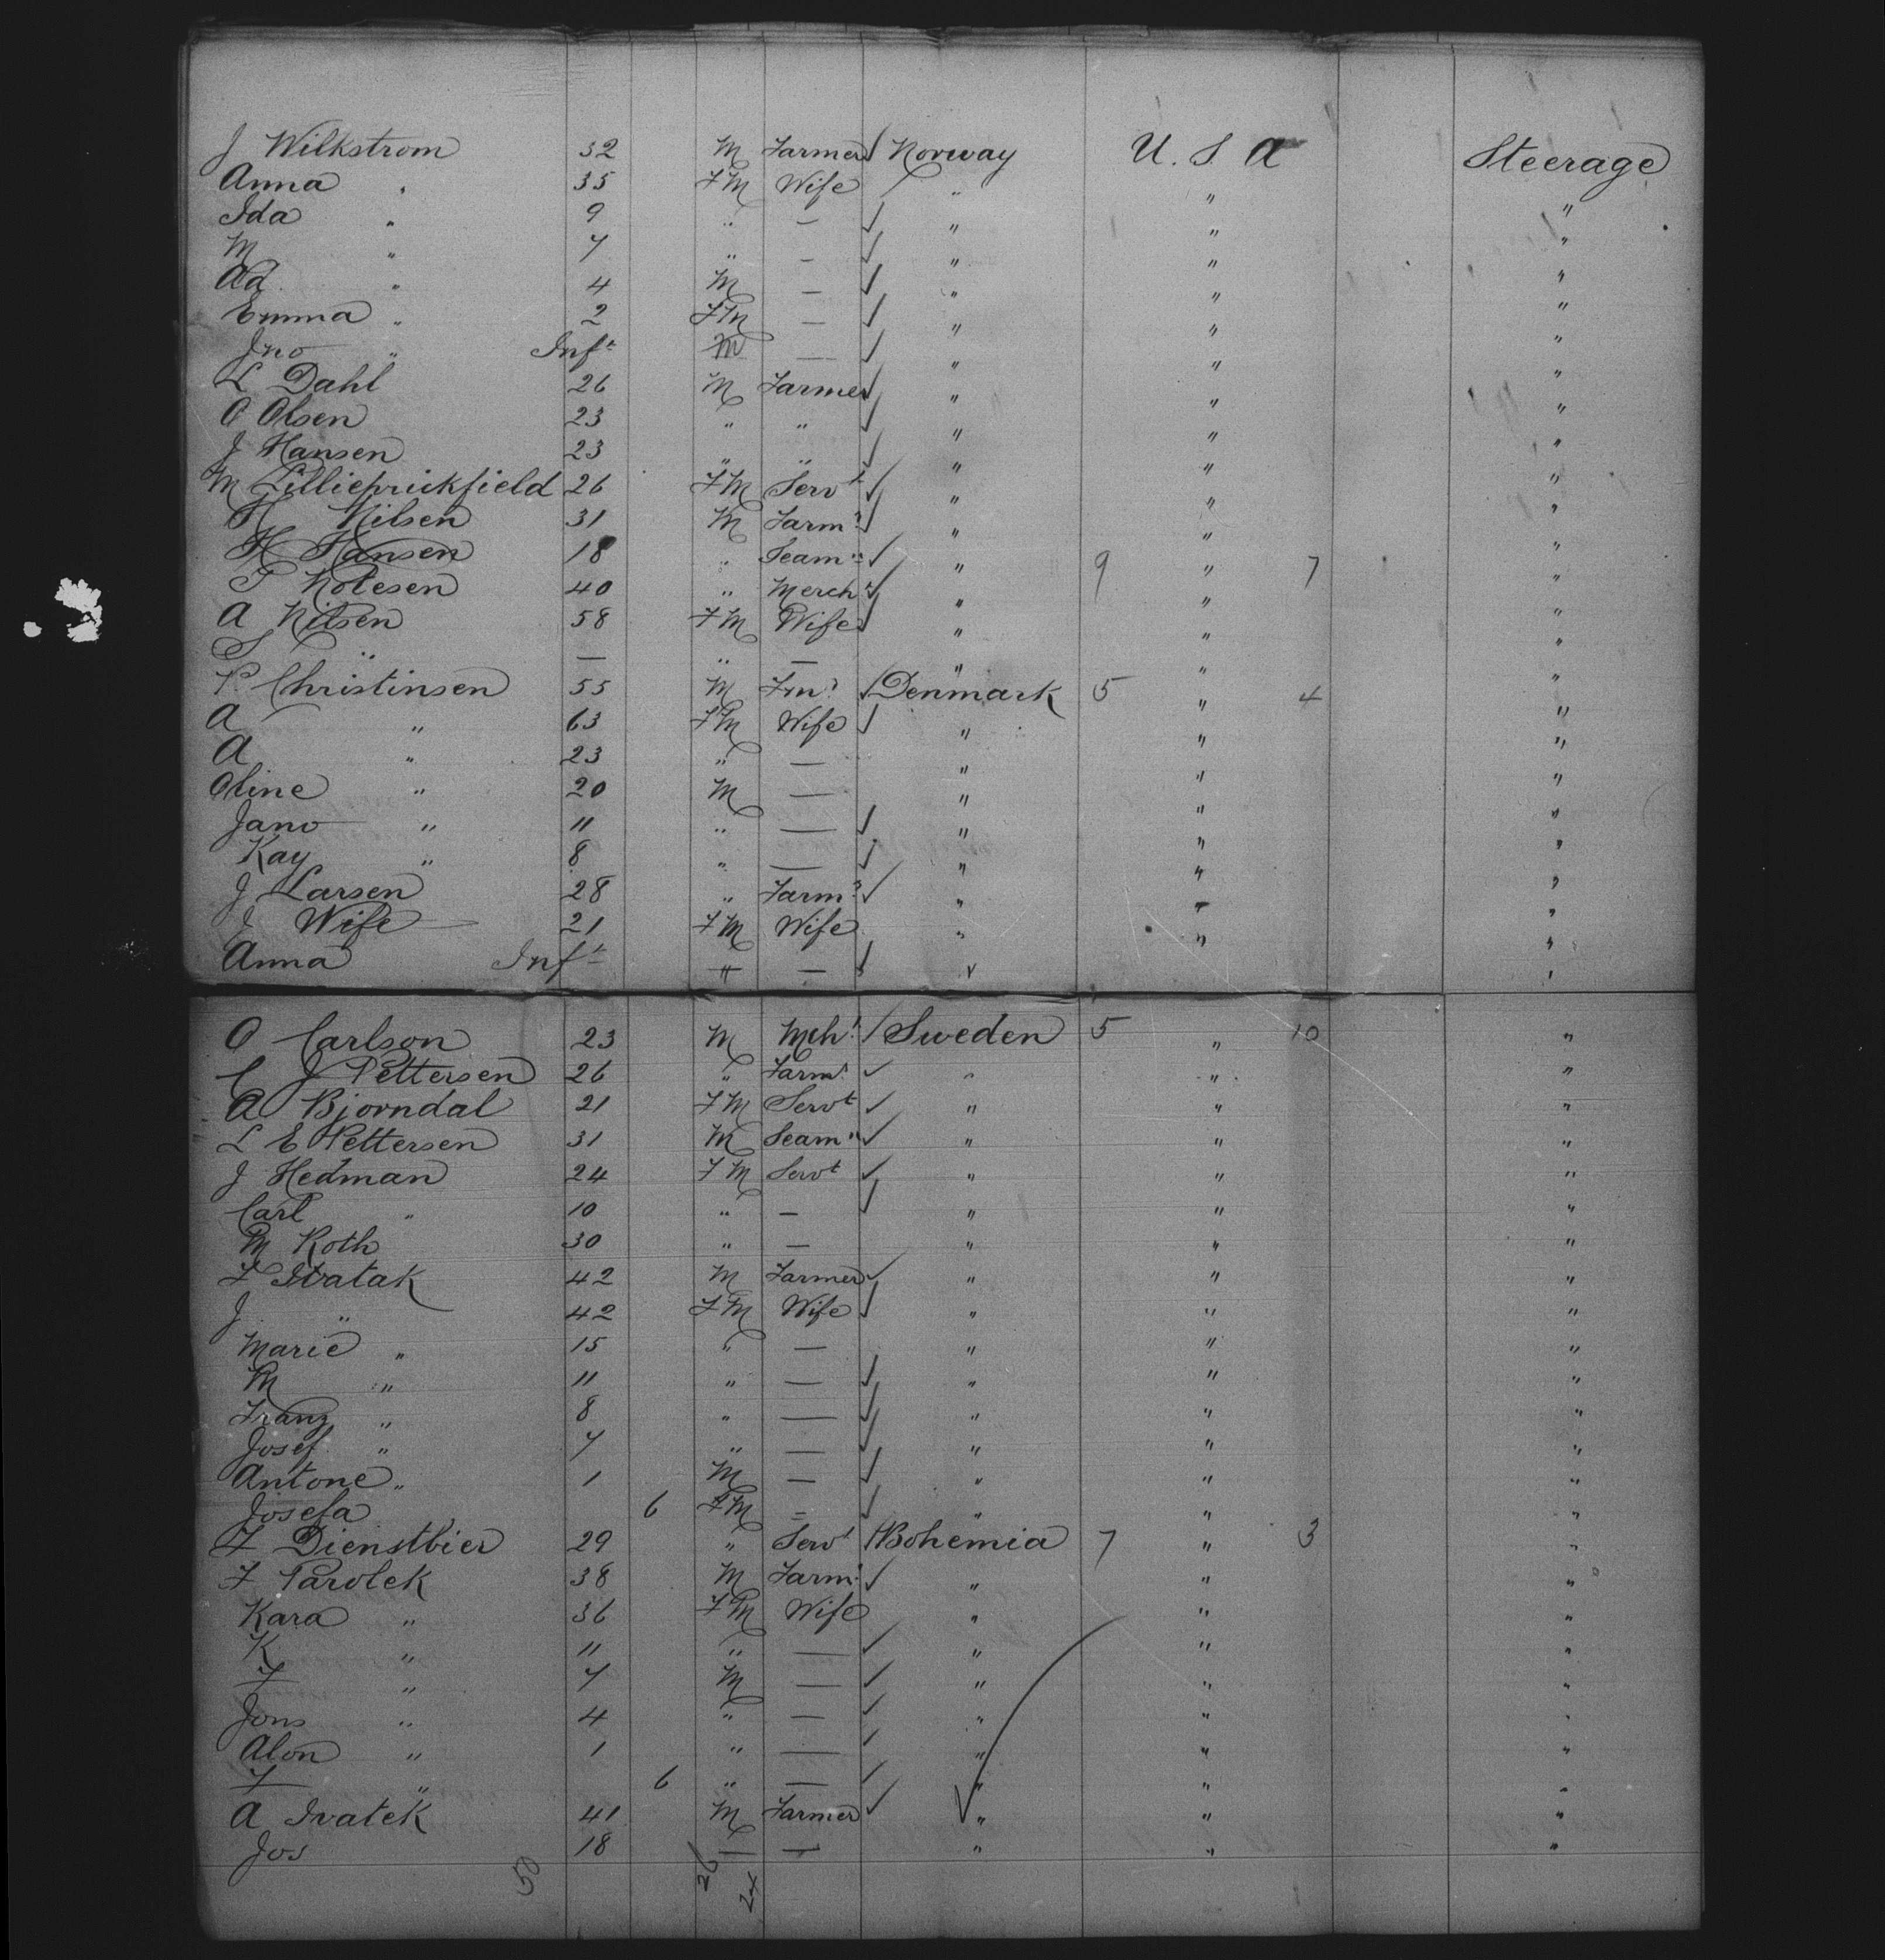 J Wilkstrom 32 M Farmer Norway U. S A Steerage
Anna " 35 FM Wife " " "
Ida " 9 " — " " "
M " 7 " — " " "
Ad " 4 M — " " "
Emma " 2 FM — " " "
Jno " Inft M — " " "
L Dahl 26 M Farmer " " "
O Olsen 23 " " " " "
J Hansen 23 " " " " "
M 26 FM Servt " " "
H Nilsen 31 M Farmr " " "
H Hansen 18 " Seamn " 9 " 7 "
P Kolesen 40 " Mercht " " "
A Nilsen 58 FM Wife " " "
S " — " — " " "
P. Christinsen 55 M Fmr Denmark 5 " 4 "
A " 63 FM Wife " " "
A " 23 " — " " "
Oline " 20 M — " " "
Jano " 11 " — " " "
Kay " 8 " — " " "
J Larsen 28 " Farmr " " "
J Wife 21 FM Wife " " "
Anna Inft " — " "
O Carlson 23 M Mcht Sweden 5 " 10 "
C J Pettersen 26 " Farmr " " "
A Bjorndal 21 FM Servt " " "
L E Pettersen 31 M Seamn " " "
J Hedman 24 FM Servt " " "
Carl " 10 " — " " "
M Roth 30 " — " " "
F Ivatak 42 M Farmer " " "
J " 42 FM Wife " " "
Marie " 15 " — " " "
M " 11 " — " " "
Franz " 8 " — " " "
Josef " 7 " — " " "
Antone " 1 M — " " "
Josefa 6 FM — " " "
F Dienstbier 29 " Servt Bohemia 7 " 3 "
F Parolek 38 M Farmr " " "
Kara " 36 FM Wife " " "
K " 11 " — " " "
F " 7 M — " " "
Jons " 4 " — " " "
Alon " 1 " — " " "
F " 6 " — " " "
A Ivatek 41 M Farmer " " "
Jos 18 — — " " "
50 26 24